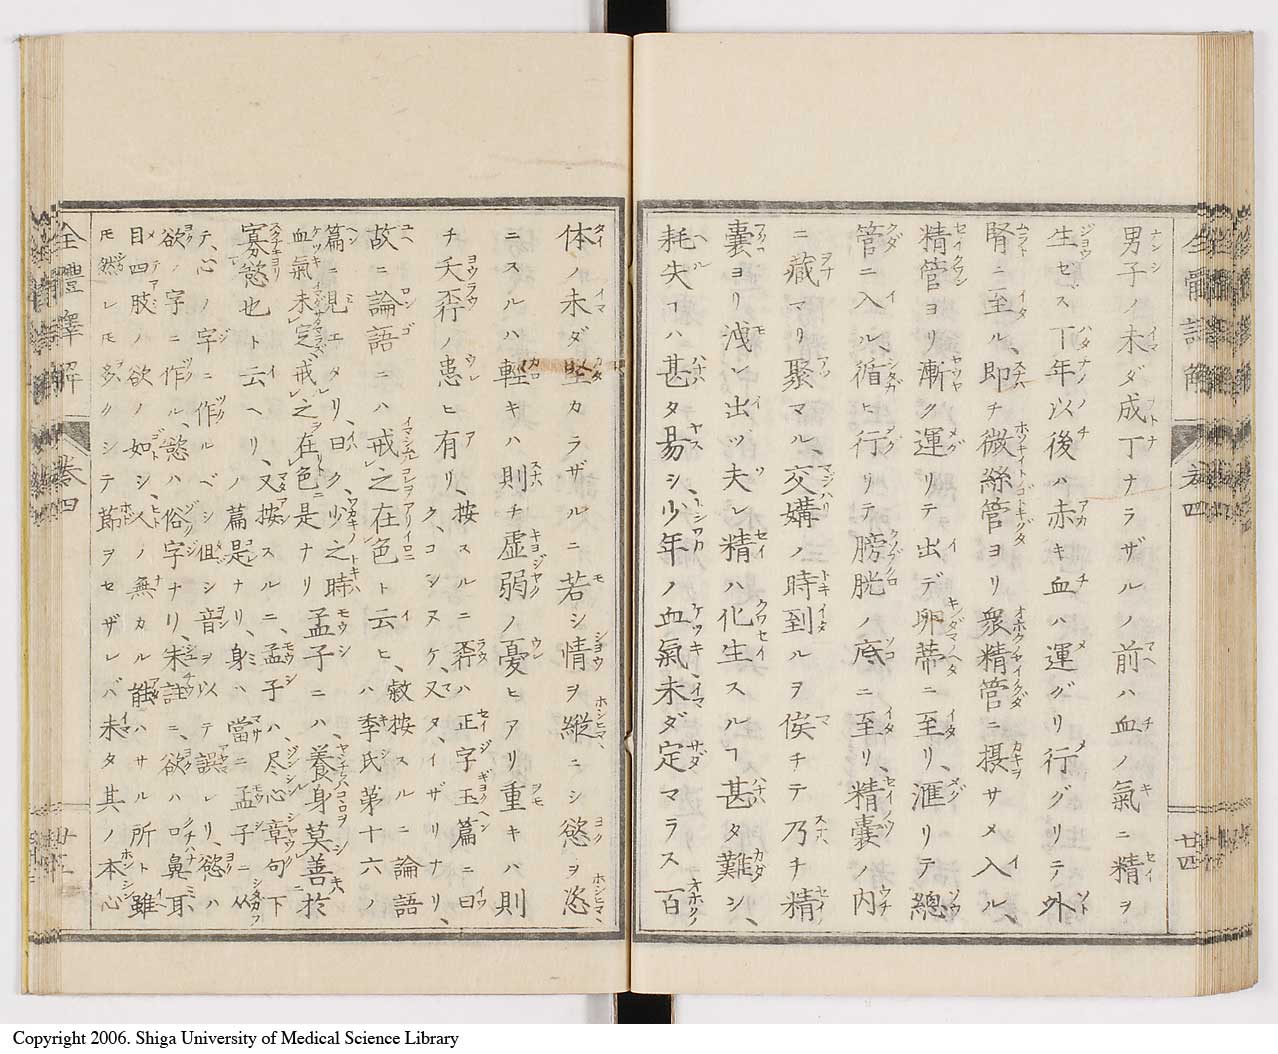 男子ノ未ダ成丁ナラザルノ前ハ血ノ氣ニ精ヲ
生セス丁年以後ハ赤キ血ハ運グリ行グリテ外
腎ニ至ル、即チ微絲管ヨリ衆精管ニ摂サメ入ル、
精管ヨリ漸ク運リテ出デ卵蒂ニ至リ、滙リテ總
管ニ入ル循ヒ行リテ膀胱ノ底ニ至リ、精嚢ノ内
ニ藏マリ聚マル、交媾ノ時到ルヲ俟チテ乃チ精
嚢ヨリ洩レ出ツ夫レ精ハ化生スルヿ甚タ難ン、
耗失ヿハ甚タ易シ、少年ノ血氣未ダ定マラス百
体ノ未ダ堅カラザルニ若シ情ヲ縱ニシ慾ヲ恣
ニスルハ輕キハ則チ虚弱ノ憂ヒアリ重キハ則
チ夭孬ノ患ヒ有リ、按スルニ孬ハ正字玉篇ニ曰
ク、コシヌケ、又タ、イザリナリ、
故ニ論語ニハ戒之在色ト云ヒ、敍按スルニ論語
ハ季氏第十六ノ
篇ニ見エタリ、曰ク、少之時
血氣未定戒之在色ニ是ナリ孟子ニハ、養身莫善於
寡慾也ト云ヘリ、又按スルニ、孟子ハ、尽心章句下
ノ篇是ナリ、身ハ當ニ孟子ニ從
テ、心ノ字ニ作ルベシ但シ音ヲ以テ誤レリ、慾ハ
欲ノ字ニ作ル、慾ハ俗字ナリ、朱註ニ、欲ハ口鼻耳
目四肢ノ欲ノ如シ、人ノ無カル能ハサル所ト雖
モ然レモ多クシテ節ヲセザレバ未タ其ノ本心
全體譯解 卷四
廿四
Copyright 2006. Shiga University of Medical Science Library